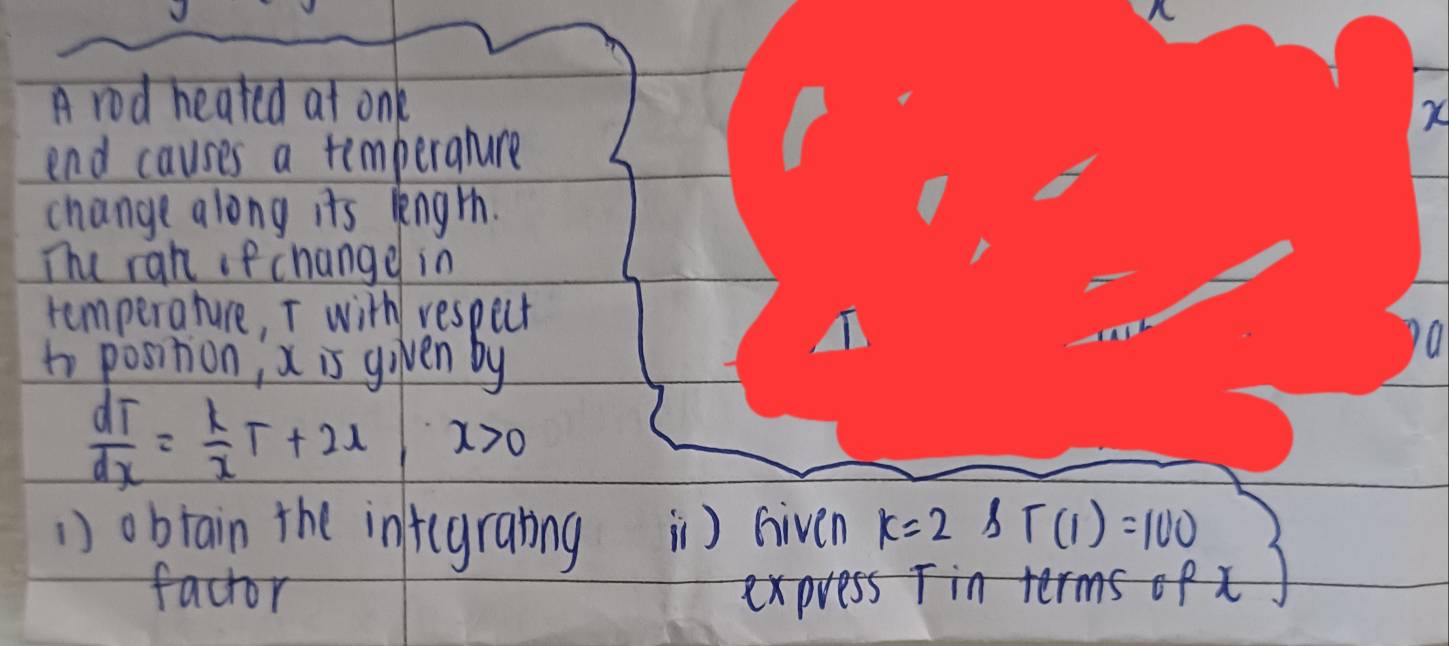 A rod heated at one
end causes a temperature
change along its length.
The rate of change in
temperature, T with respect
to position, x is given by
dT/dx = k/x T + 2x , x>0
i) obtain the integrating
factor
ii) Given k=2 & T(1) = 100
express T in terms of x
x